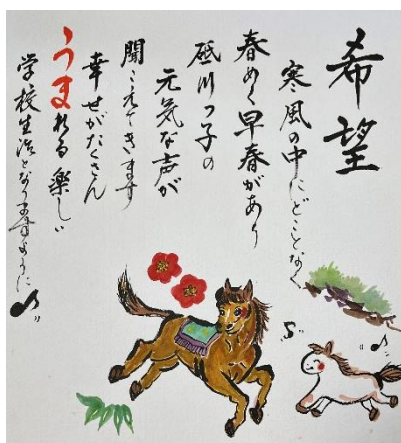 希望
寒風の中にどことなく
春めく早春があり
砥川っ子の
元気な声が
聞こえてきます
幸せがたくさん
うまれる楽しい
学校生活となりますように